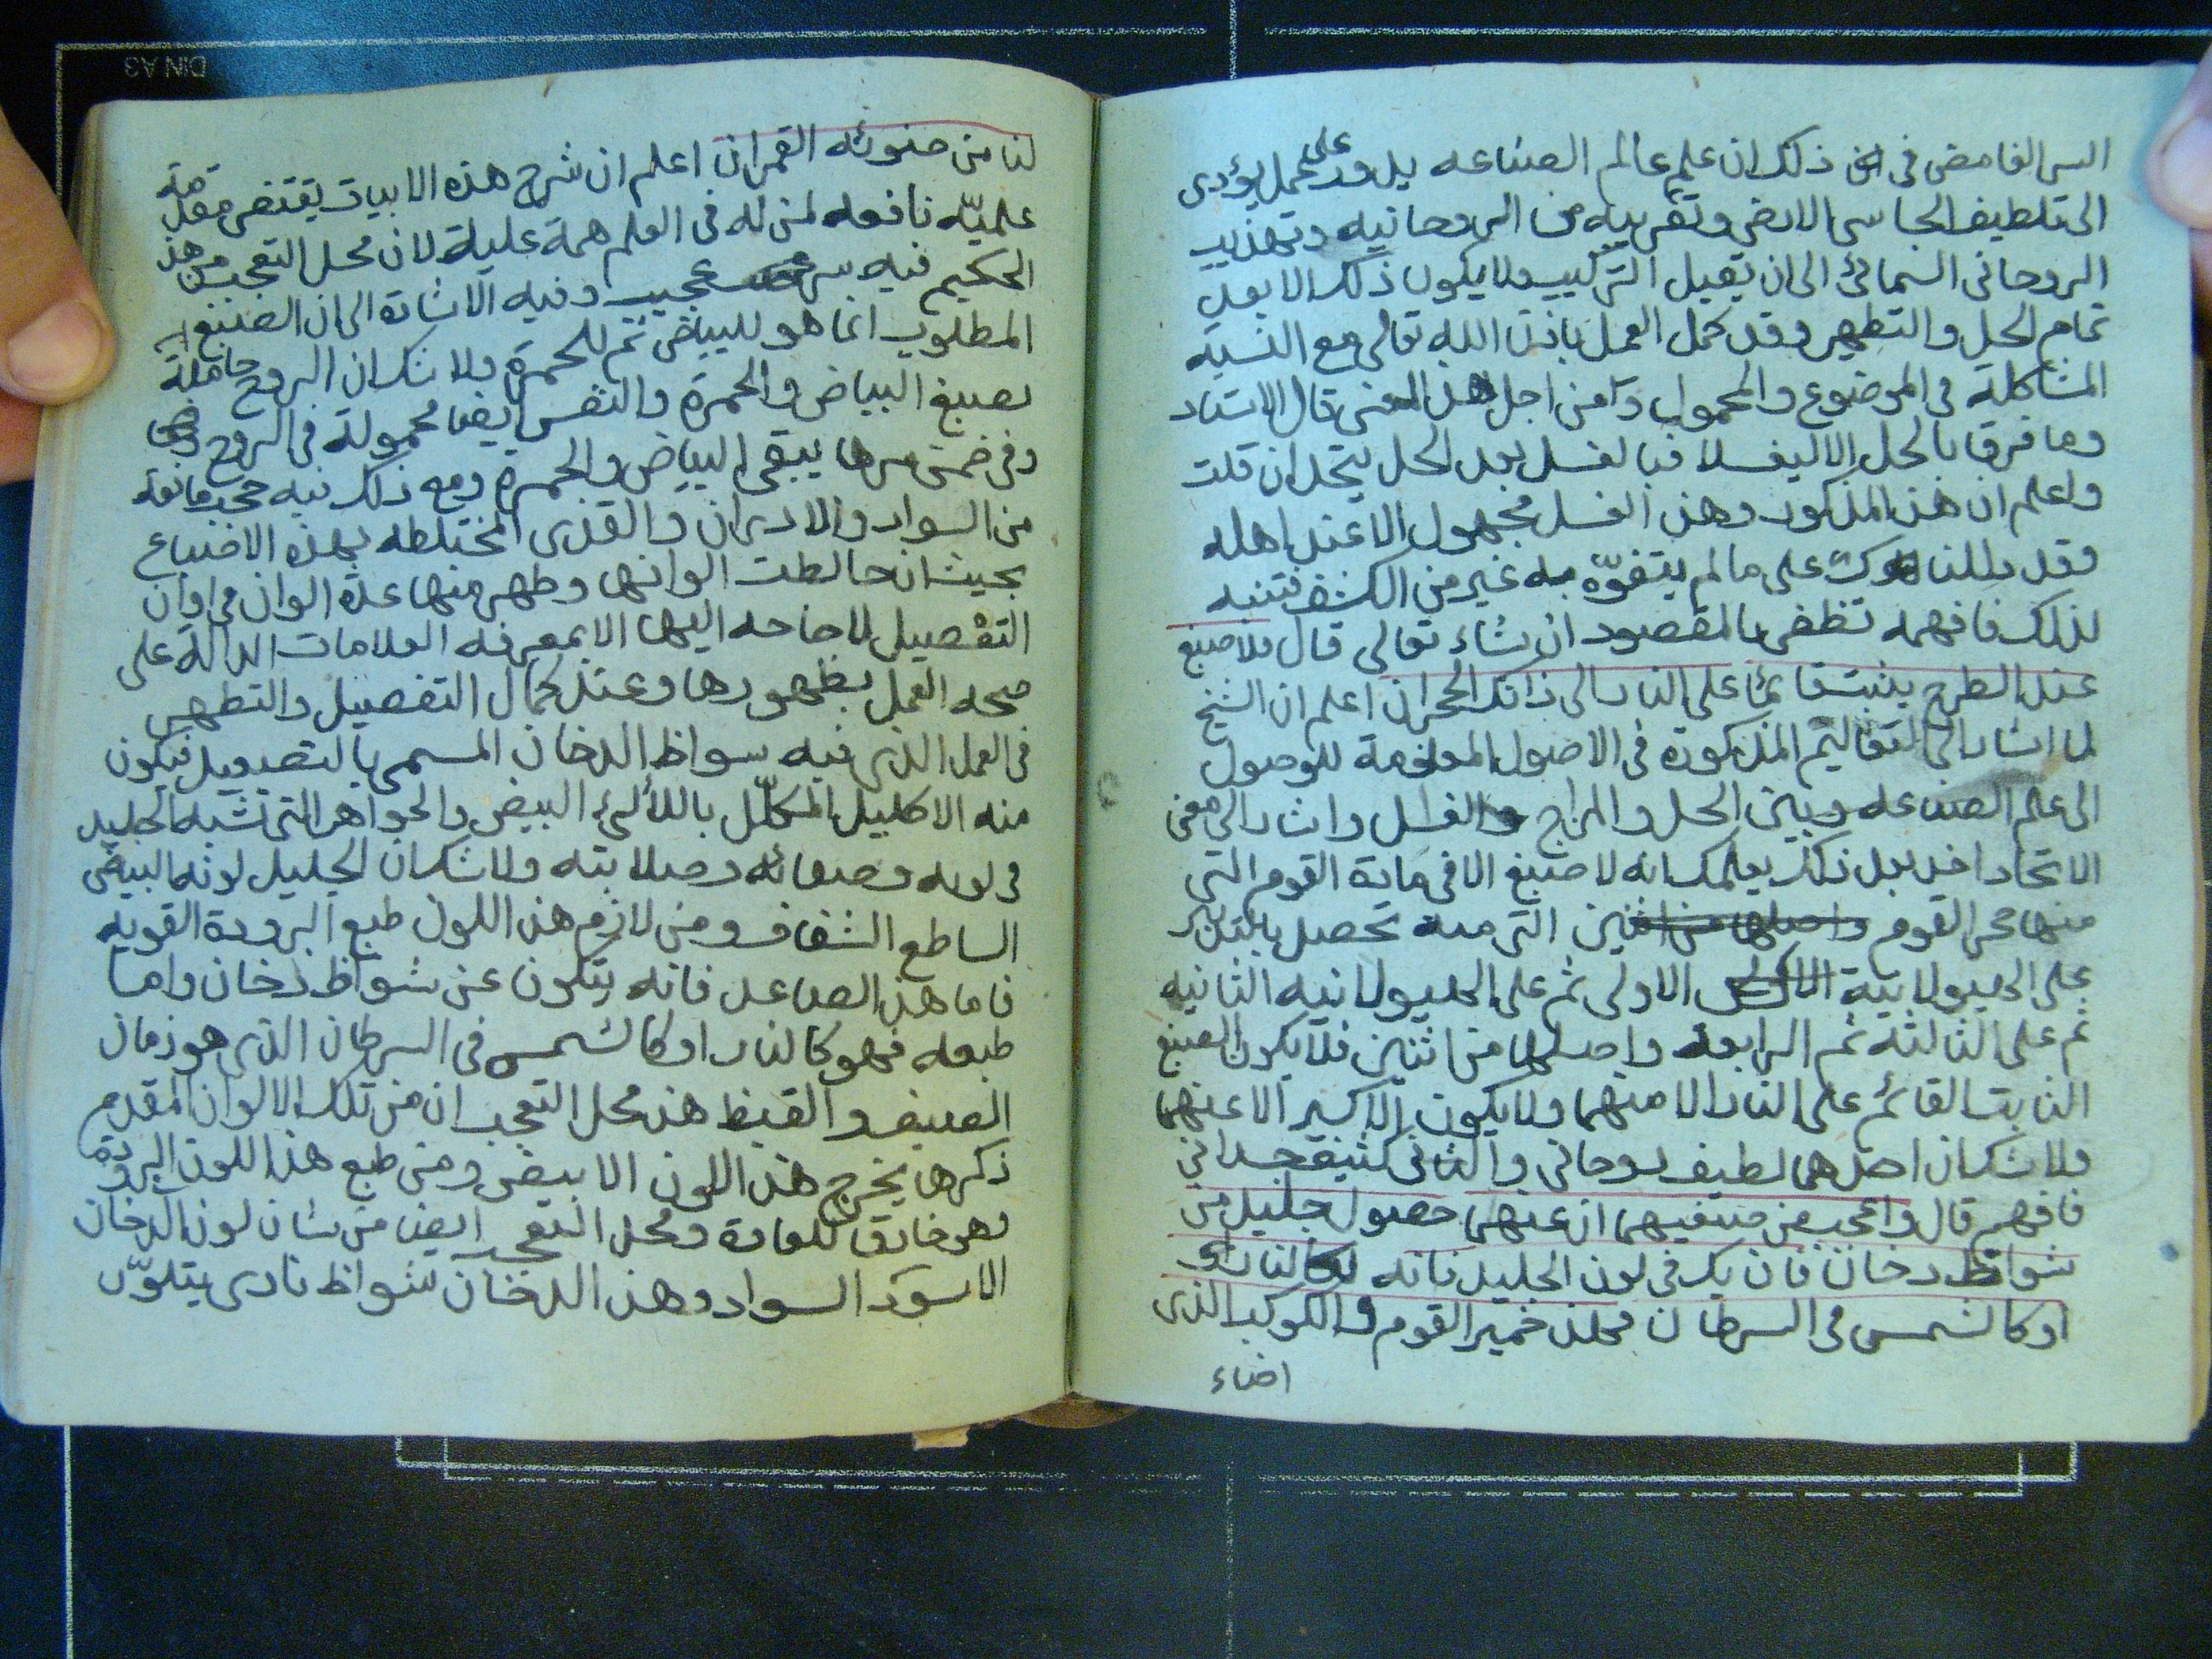 السر الغامض فى ذلك ان علم عالم الصناعه يدور على عمل يؤدى
الى تلطيف الجاسى الارضى وتقريبه من الروحانيه وتهذيب
الروحانى السمائى الى ان يقبل التركيب ولا يكون ذلك الا بعد
تمام الحل والتطهير وقد كمل العمل باذن الله تعالى مع النسبة
المشاكلة فى الموضوع والمحمول ومن اجل هذا المعنى قال الاستاد
وما فرقا بالحل الا ليغسلا فبالغسل بعد الحل يتحدان قلت
واعلم ان هذا المذكور وهذا الغسل مجهول الا عند اهله
وقد دللناك على مالم يتفوّه به غير من الكشف فتنبه
لذلك فافهمه تظفر بالمقصود ان شاء تعالى قال ولا صبغ
عند الطرح يثبت قائما على النار الى ذانك الحجران اعلم ان الشيخ
لما اشار الى التعاليم المذكورة فى الاصول المعلومة للوصول
الى علم الصناعه وبين الحل والمزاج والغسل واشار الى معنى
الاتحاد اخذ بعد ذلك يعلمك انه لا صبغ الا فى مادة القوم التى
منها حجر القوم واصلها من اثنين التى منه تحصل بالتدبير
على الهيولانية الاولى ثم على الهيولانيه الثانيه
ثم على الثالثة ثم الرابعة واصلها من اثنين فلا يكون الصبغ
الثابت القائم على النار الا منهما ولا يكون الاكسير الا عنهما
ولا شك ان احدهما لطيف روحانى والثانى كثيف جسدانى
فافهم قال واعجب من صبغيهما ان عنهما حصول جليد من
شواظ دخان فان يك فى لون الجليد فانه لكالنار او
او كالشمس فى السرطان فهذا خمير القوم والكوكب الذى
اضاء
لنا من ضوئه القمران اعلم ان شرح هذه الابيات يقتضى مقدمة
علميّه نافعه لمن له فى العلم همة علية لان محل التعجب من هذا
الحكيم فيه سر عجيب وفيه الاشارة الى ان الصبغ
المطلوب انما هو للبياض ثم للحمرة ولا شك ان الروح حاملة
لصبغ البياض والحمرة والنفس ايضا محمولة فى الروح
وفى ضمن سرها يبقى البياض والحمرة ومع ذلك فيه حجب مانعة
من السواد والادران والقذى المختلطه بهذه الاصباغ
بحيث ان خالطت الوانها وظهر منها عدة الوان فى اوان
التفصيل لا حاجه اليها الا بمعرفه العلامات الدالة على
صحه العمل بظهورها وعند كمال التفصيل والتطهير
فى العمل الذى فيه سواظ الدخان المسمى بالتصعيد فيكون
منه الاكليل المكلّل باللألئ البيض والجواهر التى تشبه الجليد
فى لونه وصفائه وصلابته ولا شك ان الجليد لونه البيض
الساطع الشفاف ومن لازم هذا اللون طبع البرودة القويه
فاما هذا الصاعد فانه يتكون عن شواظ دخان واما
طبعه فهو كالنار او كالشمس فى السرطان الذى هو زمان
الصيف والقيظ هذا محل التعجب ان من تلك الالوان المقدم
ذكرها يخرج هذا اللون الابيض ومن طبع هذا اللون البرودة
وهو خارق للعادة ومحل التعجب ايضا من شان لون الدخان
الاسود السواد وهذا الدخان شواظ نارى يتلوّن